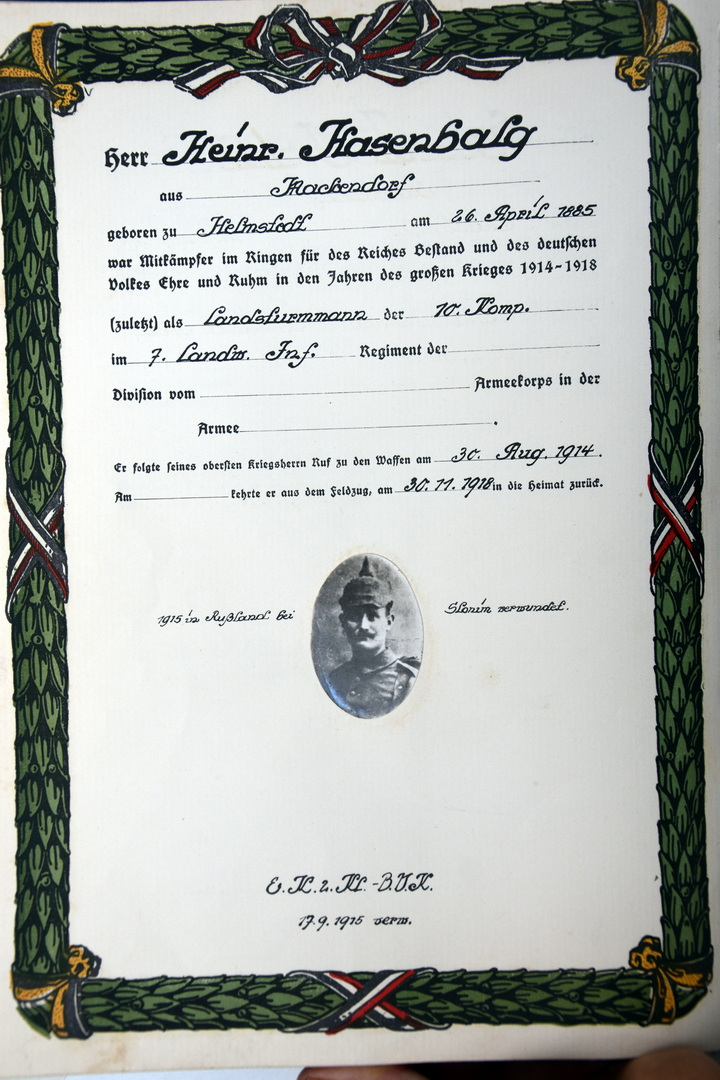 Herr Heinr. Hasenbalg
aus Mackendorf
geboren zu Helmstedt am 26. April 1885
war Mitkämpfer im Ringen für des Reiches Bestand und des deutschen
Volkes Ehre und Ruhm in den Jahren des großen Krieges 1914-1918
(zuletzt) als Landsturmmann der 10. Komp.
im 7. Landw. Inf. Regiment der
Division vom Armeekorps in der
Armee .
Er folgte seines obersten Kriegsherrn Ruf zu den Waffen am 30. Aug. 1914.
Am kehrte er aus dem Feldzug, am 30.11.1918 in die Heimat zurück.
1915 in Rußland bei Slonim verwundet.
E.K.2.Kl.-B.V.K.
17.9.1915 verw.